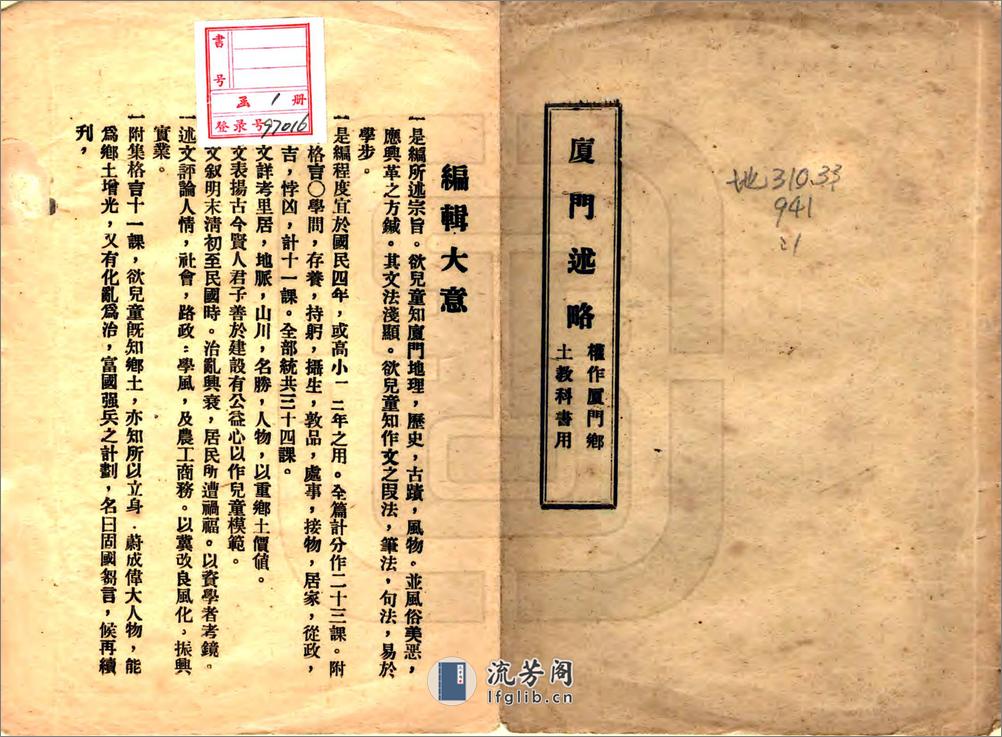 廈門述略
權作廈門鄉
土教科書用
地310.33
941
編輯大意
一是編所述宗旨。欲兒童知廈門地理，歷史，古蹟，風物。並風俗美惡，
應興革之方鍼。其文法淺顯。欲兒童知作文之段法，筆法，句法，易於
學步。
一是編程度宜於國民四年，或高小一二年之用。全篇計分作二十三課。附
格言○學問，存養，持躬，攝生，敦品，處事，接物，居家，從政，
吉，悖凶，計十一課。全部統共三十四課。
文詳考里居，地脈，山川，名勝，人物，以重鄉土價值。
文表揚古今賢人君子善於建設有公益心以作兒童模範。
文叙明末淸初至民國時。治亂興衰，居民所遭禍福。以資學者考鏡。
一述文評論人情，社會，路政：學風，及農工商務。以冀改良風化，振興
實業。
一附集格言十一課，欲兒童旣知鄉土，亦知所以立身．蔚成偉大人物，能
爲鄉土增光，又有化亂爲治，富國强兵之計劃，名曰固國芻言，候再續
刋，
書
号
函 1 册
登录号97016
流芳阁
lfglib.cn